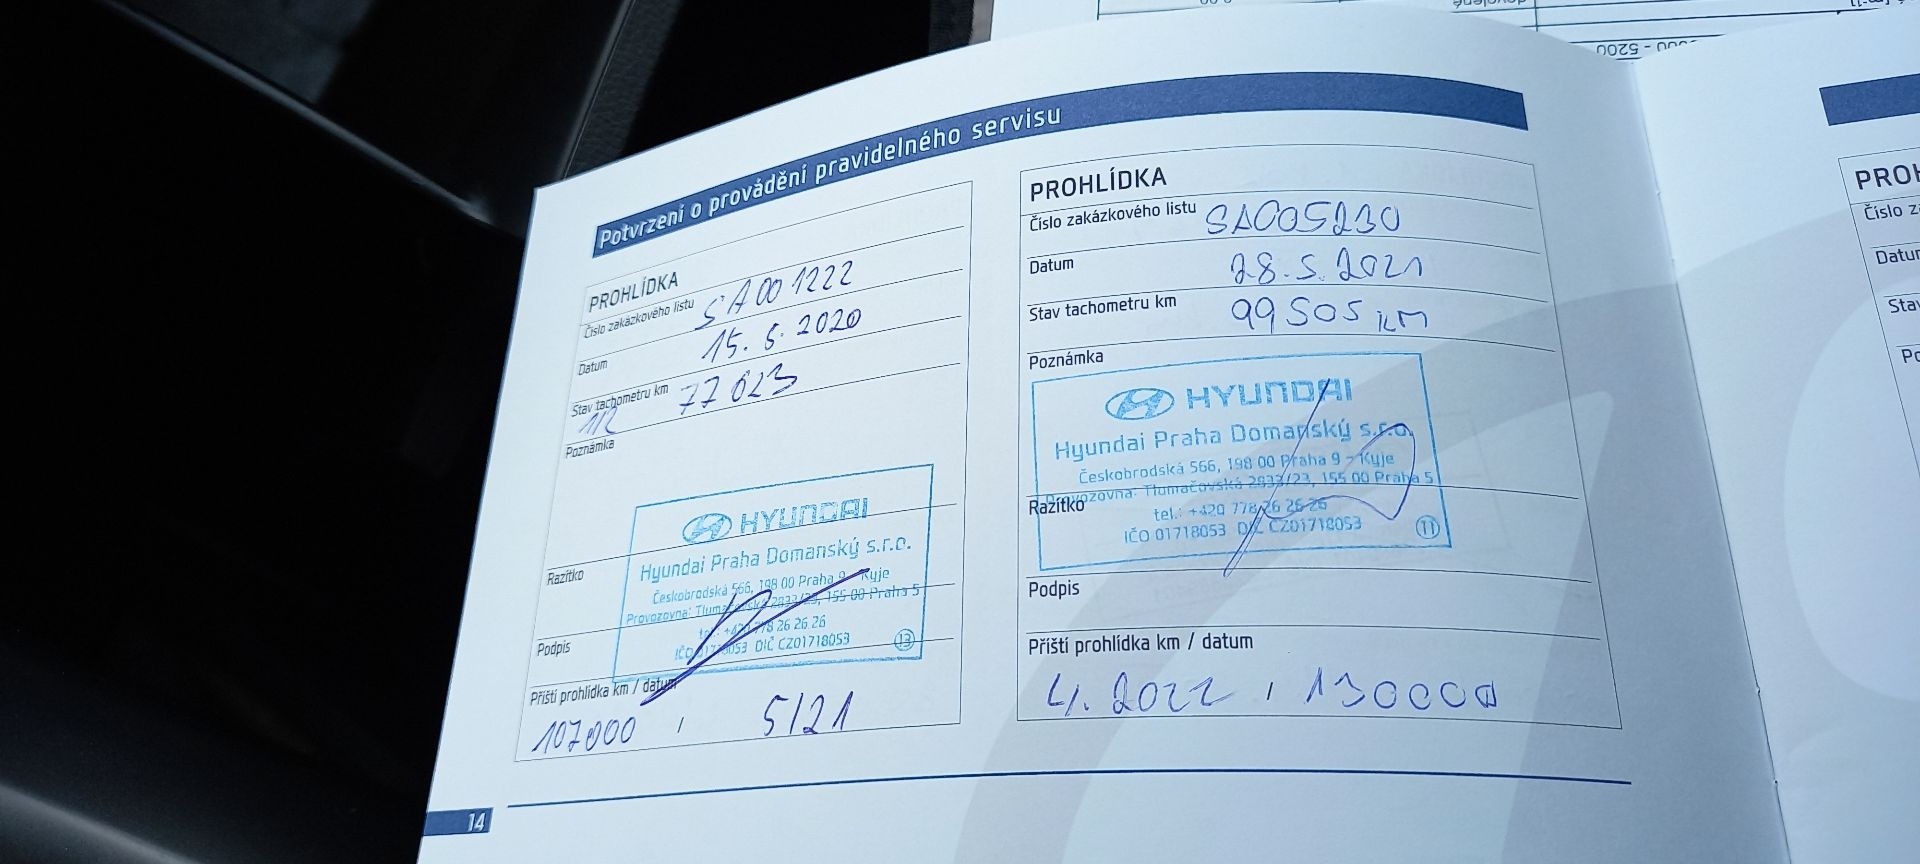 Potvrzení o provádění pravidelného servisu
PROHLÍDKA
Číslo zakázkového listu SA001222
Datum 15. 5. 2020
Stav tachometru km 77023
Poznámka
HYUNDAI
Hyundai Praha Domanský s.r.o.
Českobrodská 566, 198 00 Praha 9 - Kyje
Provozovna: Tlumačovská 2833/23, 155 00 Praha 5
tel.: +420 778 26 26 26
IČO 01718053 DIČ CZ01718053 13
Razítko
Podpis
Příští prohlídka km / datum
107000 / 5/21
PROHLÍDKA
Číslo zakázkového listu SA005230
Datum 28. 5. 2021
Stav tachometru km 99505 KM
Poznámka
HYUNDAI
Hyundai Praha Domanský s.r.o.
Českobrodská 566, 198 00 Praha 9 - Kyje
Provozovna: Tlumačovská 2833/23, 155 00 Praha 5
Razítko
tel.: +420 778 26 26 26
IČO 01718053 DIČ CZ01718053 11
Podpis
Příští prohlídka km / datum
4. 2022 / 130000
14